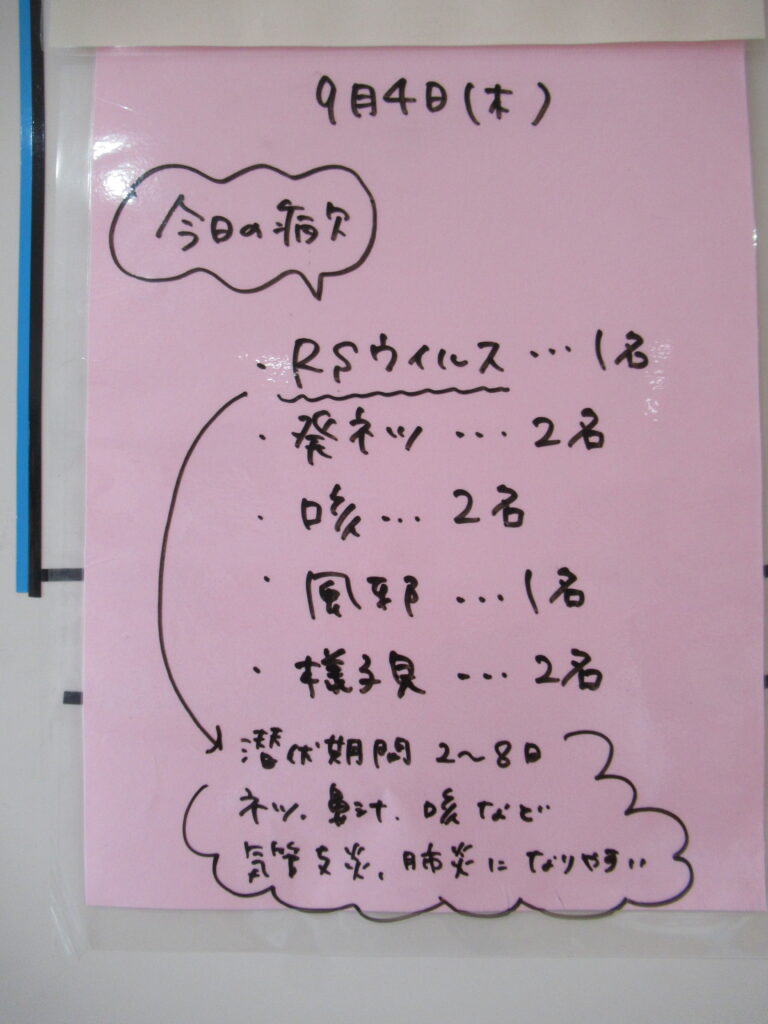 9月4日(木)
今日の病欠
・RSウイルス…1名
・発ネツ…2名
・咳…2名
・風邪…1名
・様子見…2名
潜伏期間 2~8日
ネツ、鼻汁、咳など
気管支炎、肺炎になりやすい